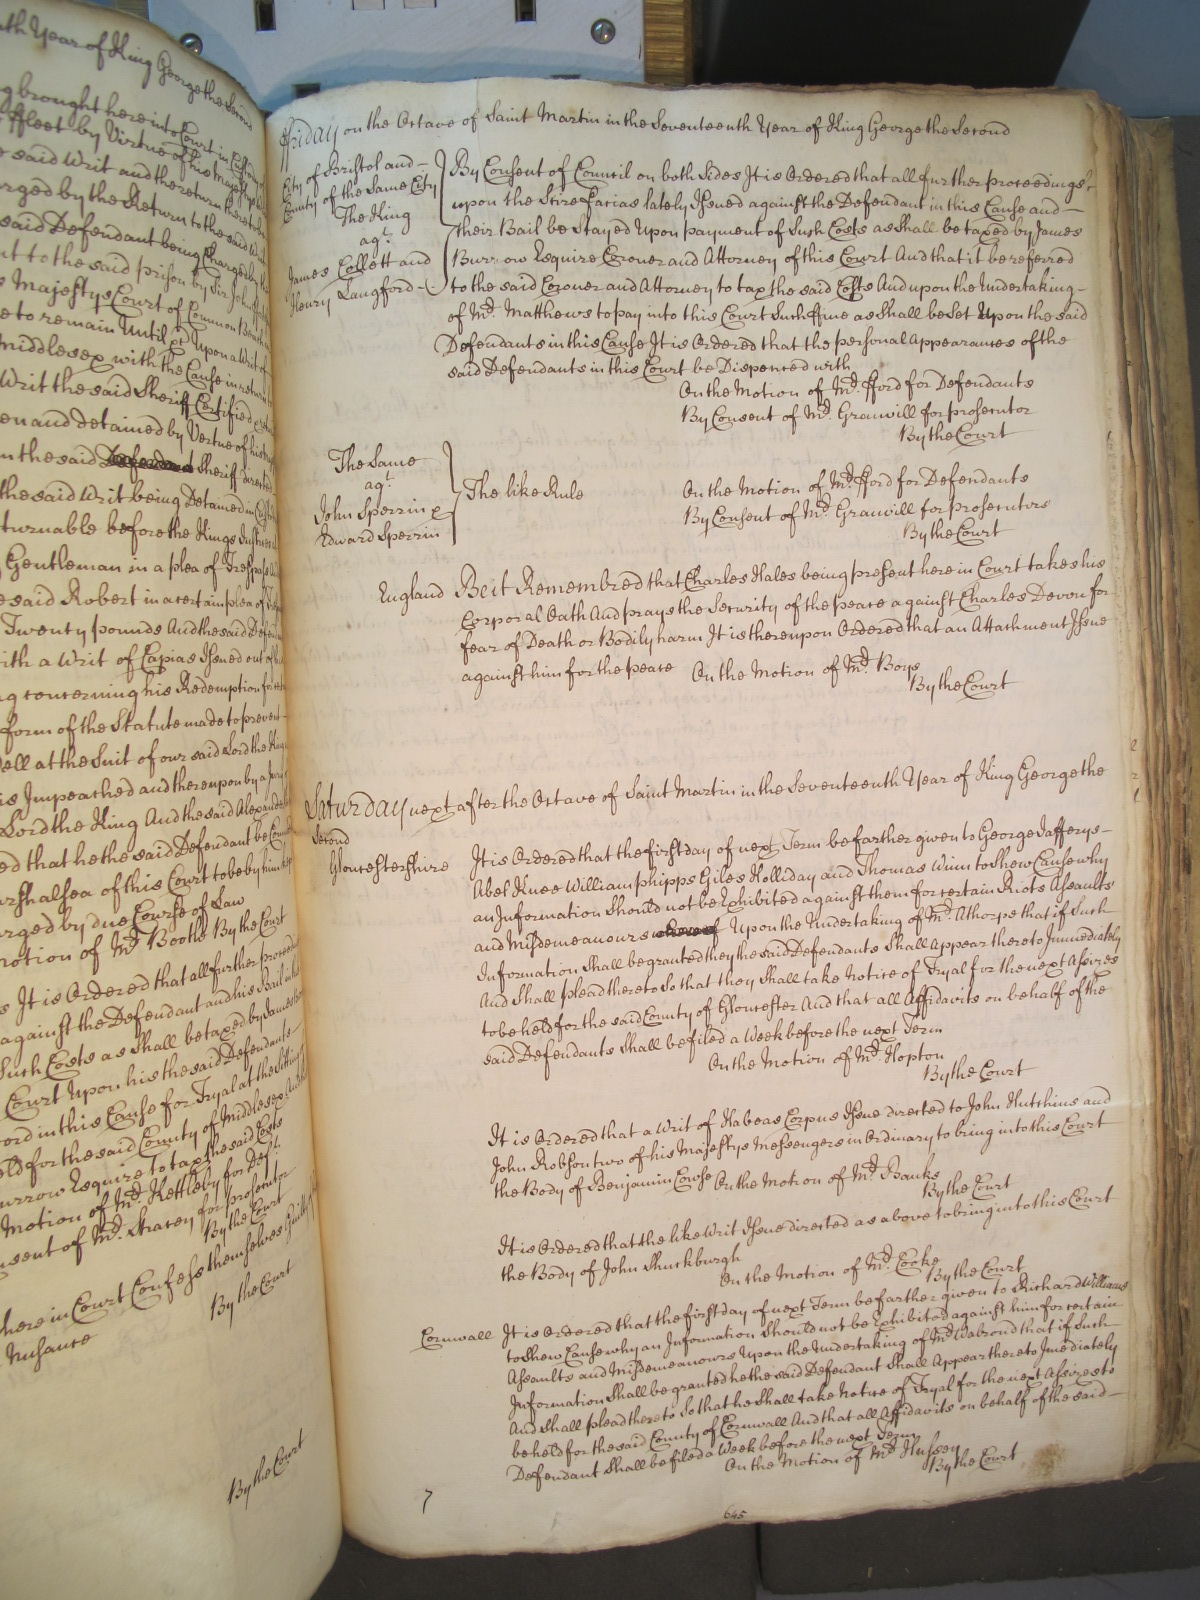 nth Year of King George the Second
g brought here into Court in
ffleet by Virtue of his Majestys
said Writ and the return thereto
arged by the Return to the said Writ
said Defendant being Charged
nt to the said prison by Sir John
Majestys Court of Common Bench
e to remain Until &c Upon a Writ of
middlesex with the Cause in return
Writ the said Sheriff Certified
en and detained by Virtue of his
n the said Sheriff directed
the said Writ being Detained in
turnable before the Kings Justices
Gentleman in a plea of Trespass
e said Robert in a certain plea of
Twenty pounds And the said
ith a Writ of Capias Issued out of
ng concerning his Redemption for
form of the Statute made to prevent
ell at the Suit of our said Lord the King
is Impeached and thereupon by a
Lord the King And the said Alexander
ed that he the said Defendant be
arshalsea of this Court to be by him
arged by due Course of Law
motion of Mr. Booths By the Court
s It is Ordered that all further proceed
against the Defendant and his Bail in
Such Costs as Shall be taxed by James
Court Upon his the said Defendants
ord in this Cause for Tryal at the Sitting
ld for the said County of Middlesex And
urrow Esquire to tax the said Costs
Motion of Mr. Kettleby for Def.t
nsent of Mr. Stracey for prosecutor
By the Court
here in Court Confess themselves Guilty
Nusance
By the Court
By the Court
ffriday on the Octave of Saint Martin in the Seventeenth Year of King George the Second
City of Bristol and
County of the Same City
The King
agt.
James Collett and
Henry Langford
By Consent of Council on both Sides It is Ordered that all further proceedings
upon the Scire facias lately Issued against the Defendant in this Cause and
their Bail be Stayed Upon payment of Such Costs as Shall be taxed by James
Burrow Esquire Coroner and Attorney of this Court And that it be referred
to the said Coroner and Attorney to tax the said Costs And upon the Undertaking
of Mr. Matthews to pay into this Court Such ffine as Shall be Set Upon the said
Defendants in this Cause It is Ordered that the personal Appearances of the
said Defendants in this Court be Dispenced with
On the Motion of Mr. fford for Defendants
By Consent of Mr. Granvill for prosecutor
By the Court
The Same
agt.
John Sperrin &
Edward Sperrin
The like Rule
On the Motion of Mr. fford for Defendants
By Consent of Mr. Granvill for prosecutors
By the Court
England Be it Remembred that Charles Hales being present here in Court takes his
Corporal Oath And prays the Security of the peace against Charles Devon for
fear of Death or Bodily harm It is thereupon Ordered that an Attachment Issue
against him for the peace On the Motion of Mr. Boys
By the Court
Saturday next after the Octave of Saint Martin in the Seventeenth Year of King George the
Second
Gloucestershire It is Ordered that the first day of next Term be farther given to George Jafferys
Abel Knee William phipps Giles Holliday and Thomas Winn to Shew Cause why
an Information Should not be Exhibited against them for certain Riots Assaults
and Misdemeanours Upon the Undertaking of Mr. Athorpe that if Such
Information Shall be granted they the said Defendants Shall Appear thereto Immediately
And Shall plead thereto So that they Shall take Notice of Tryal for the next Assizes
to be held for the said County of Gloucester And that all Affidavits on behalf of the
said Defendants Shall be filed a Week before the next Term
On the Motion of Mr. Hopton
By the Court
It is Ordered that a Writ of Habeas Corpus Issue directed to John Hutchins and
John Robson two of his Majestys Messengers in Ordinary to bring into this Court
the Body of Benjamin Cowse On the Motion of Mr. Banks
By the Court
It is Ordered that the like Writ Issue directed as above to bring into this Court
the Body of John Shuckburgh
On the Motion of Mr. Cooke
By the Court
Cornwall It is Ordered that the first day of next Term be farther given to Richard Williams
to Shew Cause why an Information Should not be Exhibited against him for certain
Assaults and Misdemeanours Upon the Undertaking of Mr. Walrond that if Such
Information Shall be granted he the said Defendant Shall Appear thereto Imediately
And Shall plead thereto So that he Shall take Notice of Tryal for the next Assizes to
be held for the said County of Cornwall And that all Affidavits on behalf of the said
Defendant Shall be filed a Week before the next Term
On the Motion of Mr. Hussey
By the Court
7
645